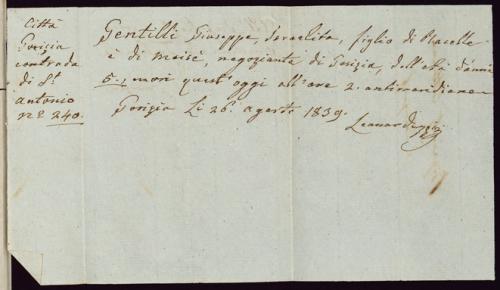 Città
Gorizia
contrada
di St
Antonio
N.º 240.
Gentilli Giuseppe, Israelita, figlio di Rachelle
è di Moisè, negoziante di Gorizia, dell'età d'anni
5., mori quest'oggi all'ore 2. antimeridiane
Gorizia li 26. agosto 1839.